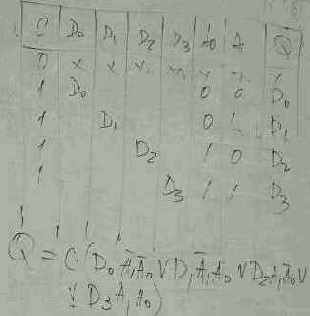 C D₀ D₁ D₂ D₃ A₀ A Q
0 x x x
1 D₀ 0 0 D₀
1 D₁ 0 1 D₁
1 D₂ 1 0 D₂
1 D₃ 1 1 D₃
Q = C(D₀ Ā₁Ā₀ V D₁Ā₁A₀ V D₂A₁Ā₀ V
V D₃A₁A₀)